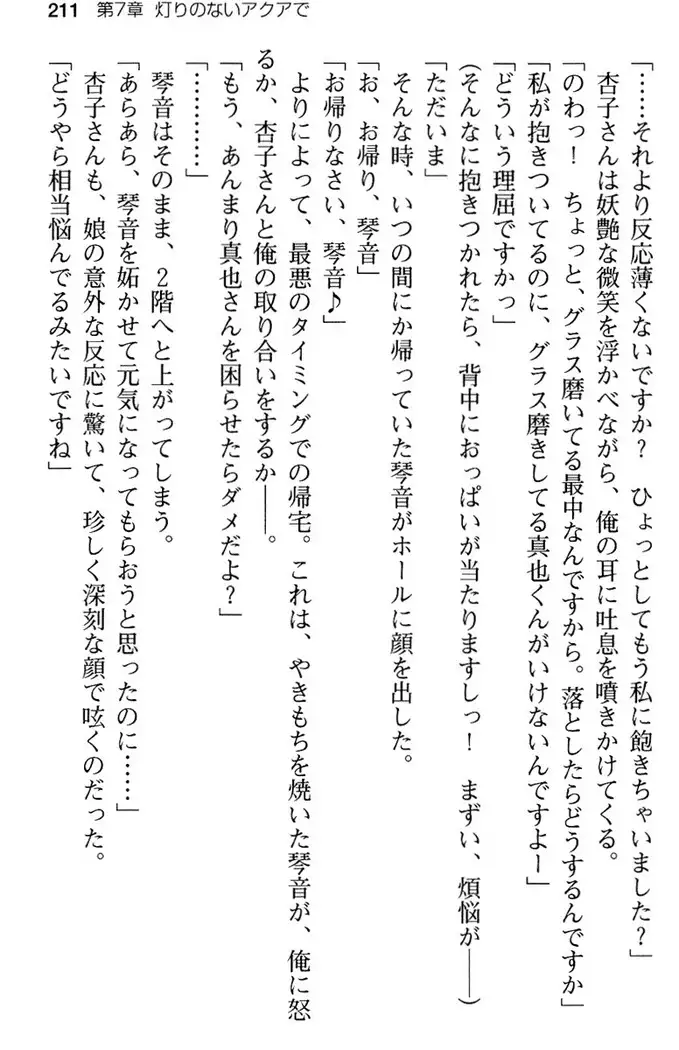 211 第7章 灯りのないアクアで
「……それより反応薄くないですか？　ひょっとしてもう私に飽きちゃいました？」
杏子さんは妖艶な微笑を浮かべながら、俺の耳に吐息を噴きかけてくる。
「のわっ！　ちょっと、グラス磨いてる最中なんですから。落としたらどうするんですか」
「私が抱きついてるのに、グラス磨きしてる真也くんがいけないんですよー」
「どういう理屈ですかっ」
（そんなに抱きつかれたら、背中におっぱいが当たりますしっ！　まずい、煩悩が――）
「ただいま」
そんな時、いつの間にか帰っていた琴音がホールに顔を出した。
「お、お帰り、琴音」
「お帰りなさい、琴音♪」
よりによって、最悪のタイミングでの帰宅。これは、やきもちを焼いた琴音が、俺に怒
るか、杏子さんと俺の取り合いをするか――。
「もう、あんまり真也さんを困らせたらダメだよ？」
「…………」
琴音はそのまま、２階へと上がってしまう。
「あらあら、琴音を妬かせて元気になってもらおうと思ったのに……」
杏子さんも、娘の意外な反応に驚いて、珍しく深刻な顔で呟くのだった。
「どうやら相当悩んでるみたいですね」